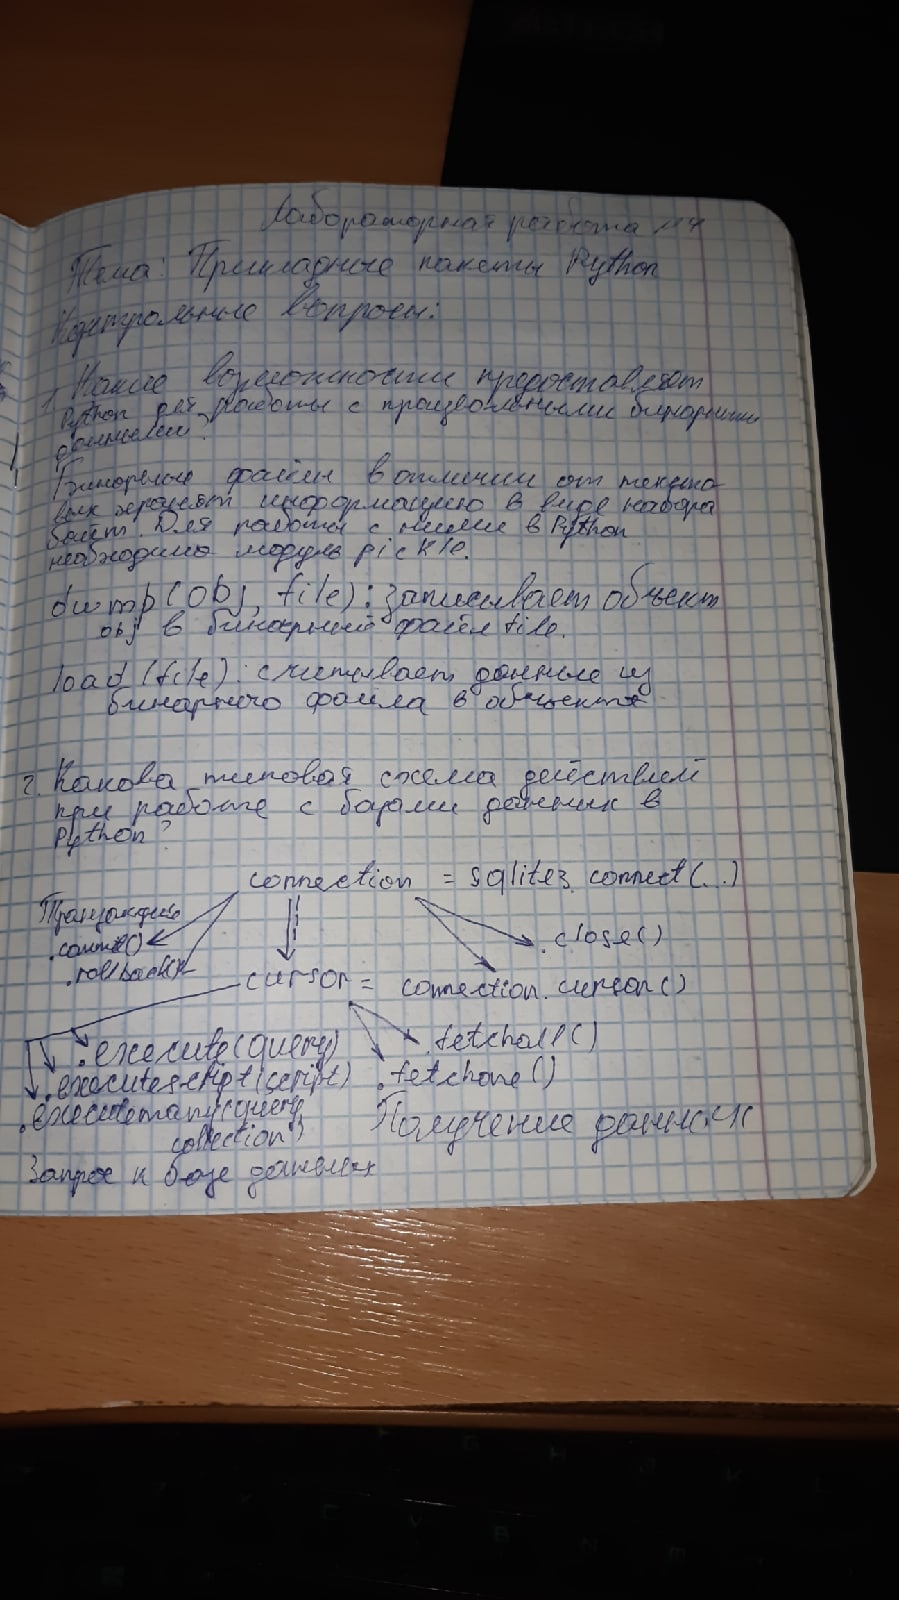 Лабораторная работа №4
Тема: Прикладные пакеты Python
Контрольные вопросы:
1. Какие возможности предоставляет
Python для работы с произвольными бинарными
данными?
Бинарные файлы в отличии от тексто
вых хранят информацию в виде набора
байт. Для работы с ними в Python
необходимо модуль pickle.
dump(obj, file): записывает объект
obj в бинарный файл file.
load(file): считывает данные из
бинарного файла в объекты
2. Какова типовая схема действий
при работе с базами данных в
Python?
connection = sqlite3.connect(...)
Транзакции
.commit()
.rollback()
.close()
cursor = connection.cursor()
.execute(query)
.fetchall()
.executescript(script)
.fetchone()
.executemany(query,
collection)
Получение данных
Запрос к базе данных